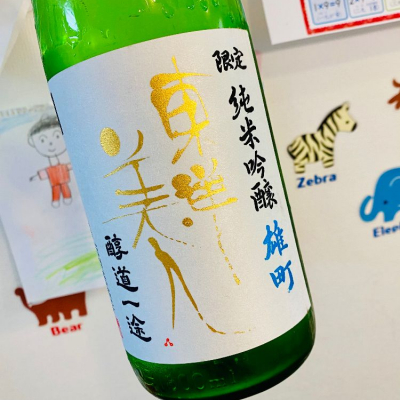 限定
純米吟醸
雄町
東洋
美人
醇道一途
Zebra
Bear